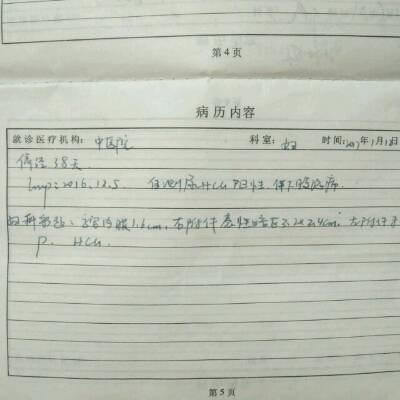 第4页
病历内容
就诊医疗机构: 中医院 科室: 妇 时间: 2017年1月12日
停经38天
lmp: 2016.12.5. 自测尿HCG阳性, 伴下腹隐痛
妇科彩超: 子宫内膜1.6cm, 右附件囊性暗区3.2x2.4cm² 左附件
P. HCG
第5页